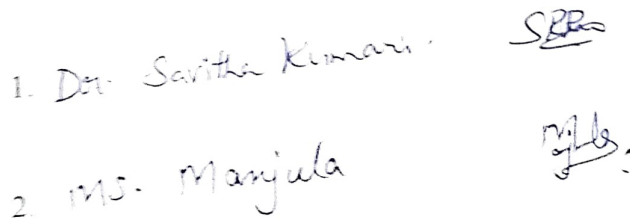 1. Dr. Savitha Kumari.
2. Ms. Manjula